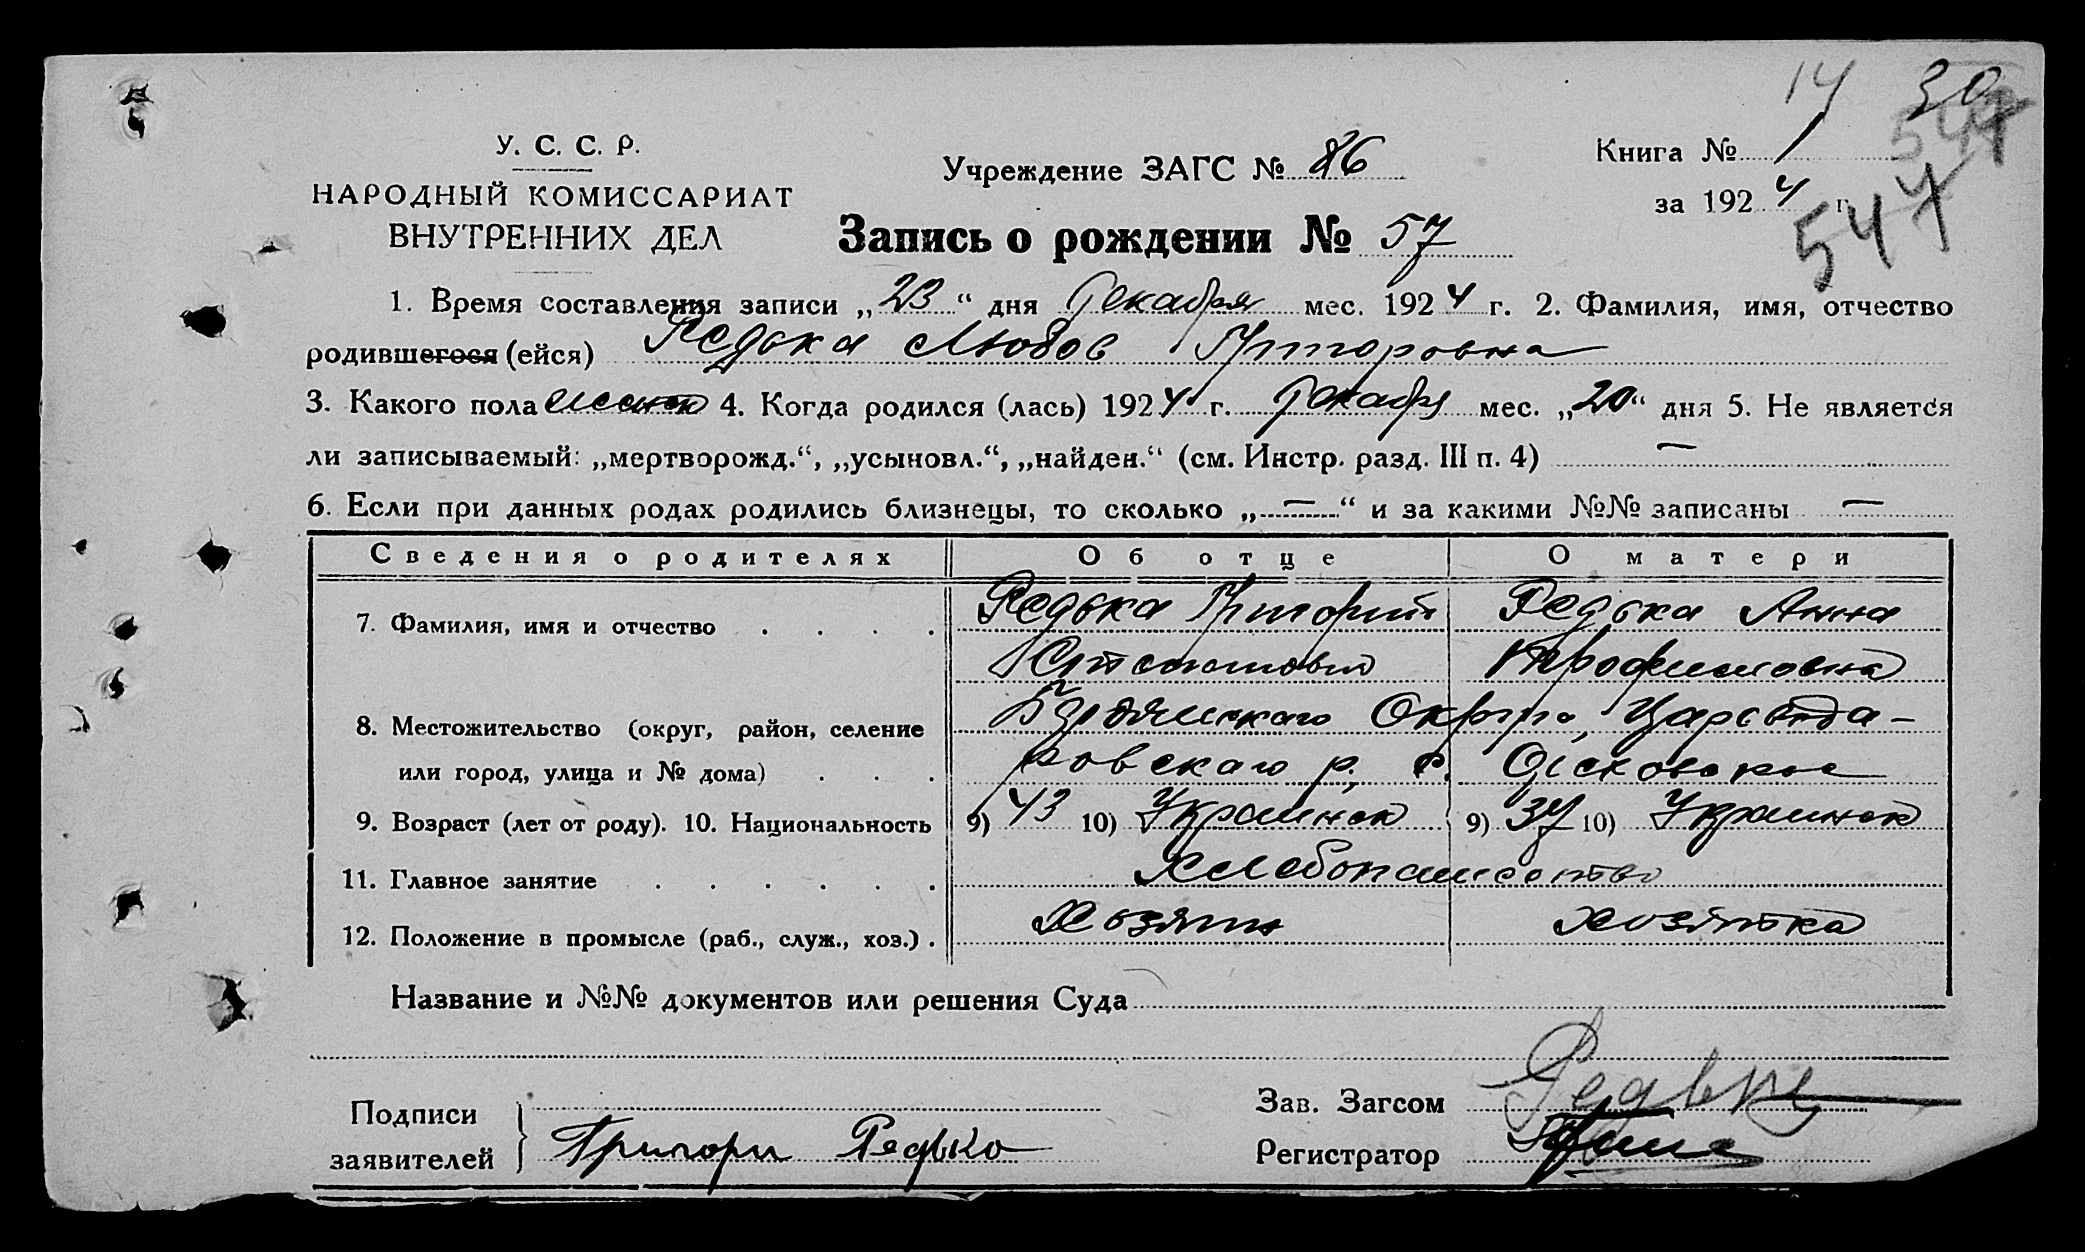 14 30
547
547
У. С. С. Р.
НАРОДНЫЙ КОМИССАРИАТ
ВНУТРЕННИХ ДЕЛ
Учреждение ЗАГС № 86
Книга № 1
за 1924 г.
Запись о рождении № 57
1. Время составления записи „23“ дня Декабря мес. 1924 г. 2. Фамилия, имя, отчество
родившегося (ейся) Редька Любов Григоровна
3. Какого пола женск 4. Когда родился (лась) 1924 г. Декабря мес. „20“ дня 5. Не является
ли записываемый: „мертворожд.“, „усыновл.“, „найден.“ (см. Инстр. разд. III п. 4) —
6. Если при данных родах родились близнецы, то сколько „—“ и за какими №№ записаны —
Сведения о родителях Об отце О матери
7. Фамилия, имя и отчество . . . . Редька Григорий Редька Анна
Степанович Трофимовна
8. Местожительство (округ, район, селение Бердянскаго Округа, Царевода-
или город, улица и № дома) . . . ровскаго р. с.
9. Возраст (лет от роду). 10. Национальность 9) 43 10) Украинск 9) 37 10) Украинск
11. Главное занятие . . . . . . Хлебопашество
12. Положение в промысле (раб., служ., хоз.) . Хозяин хозяйка
Название и №№ документов или решения Суда
Подписи
заявителей Григори Редько
Зав. Загсом
Регистратор